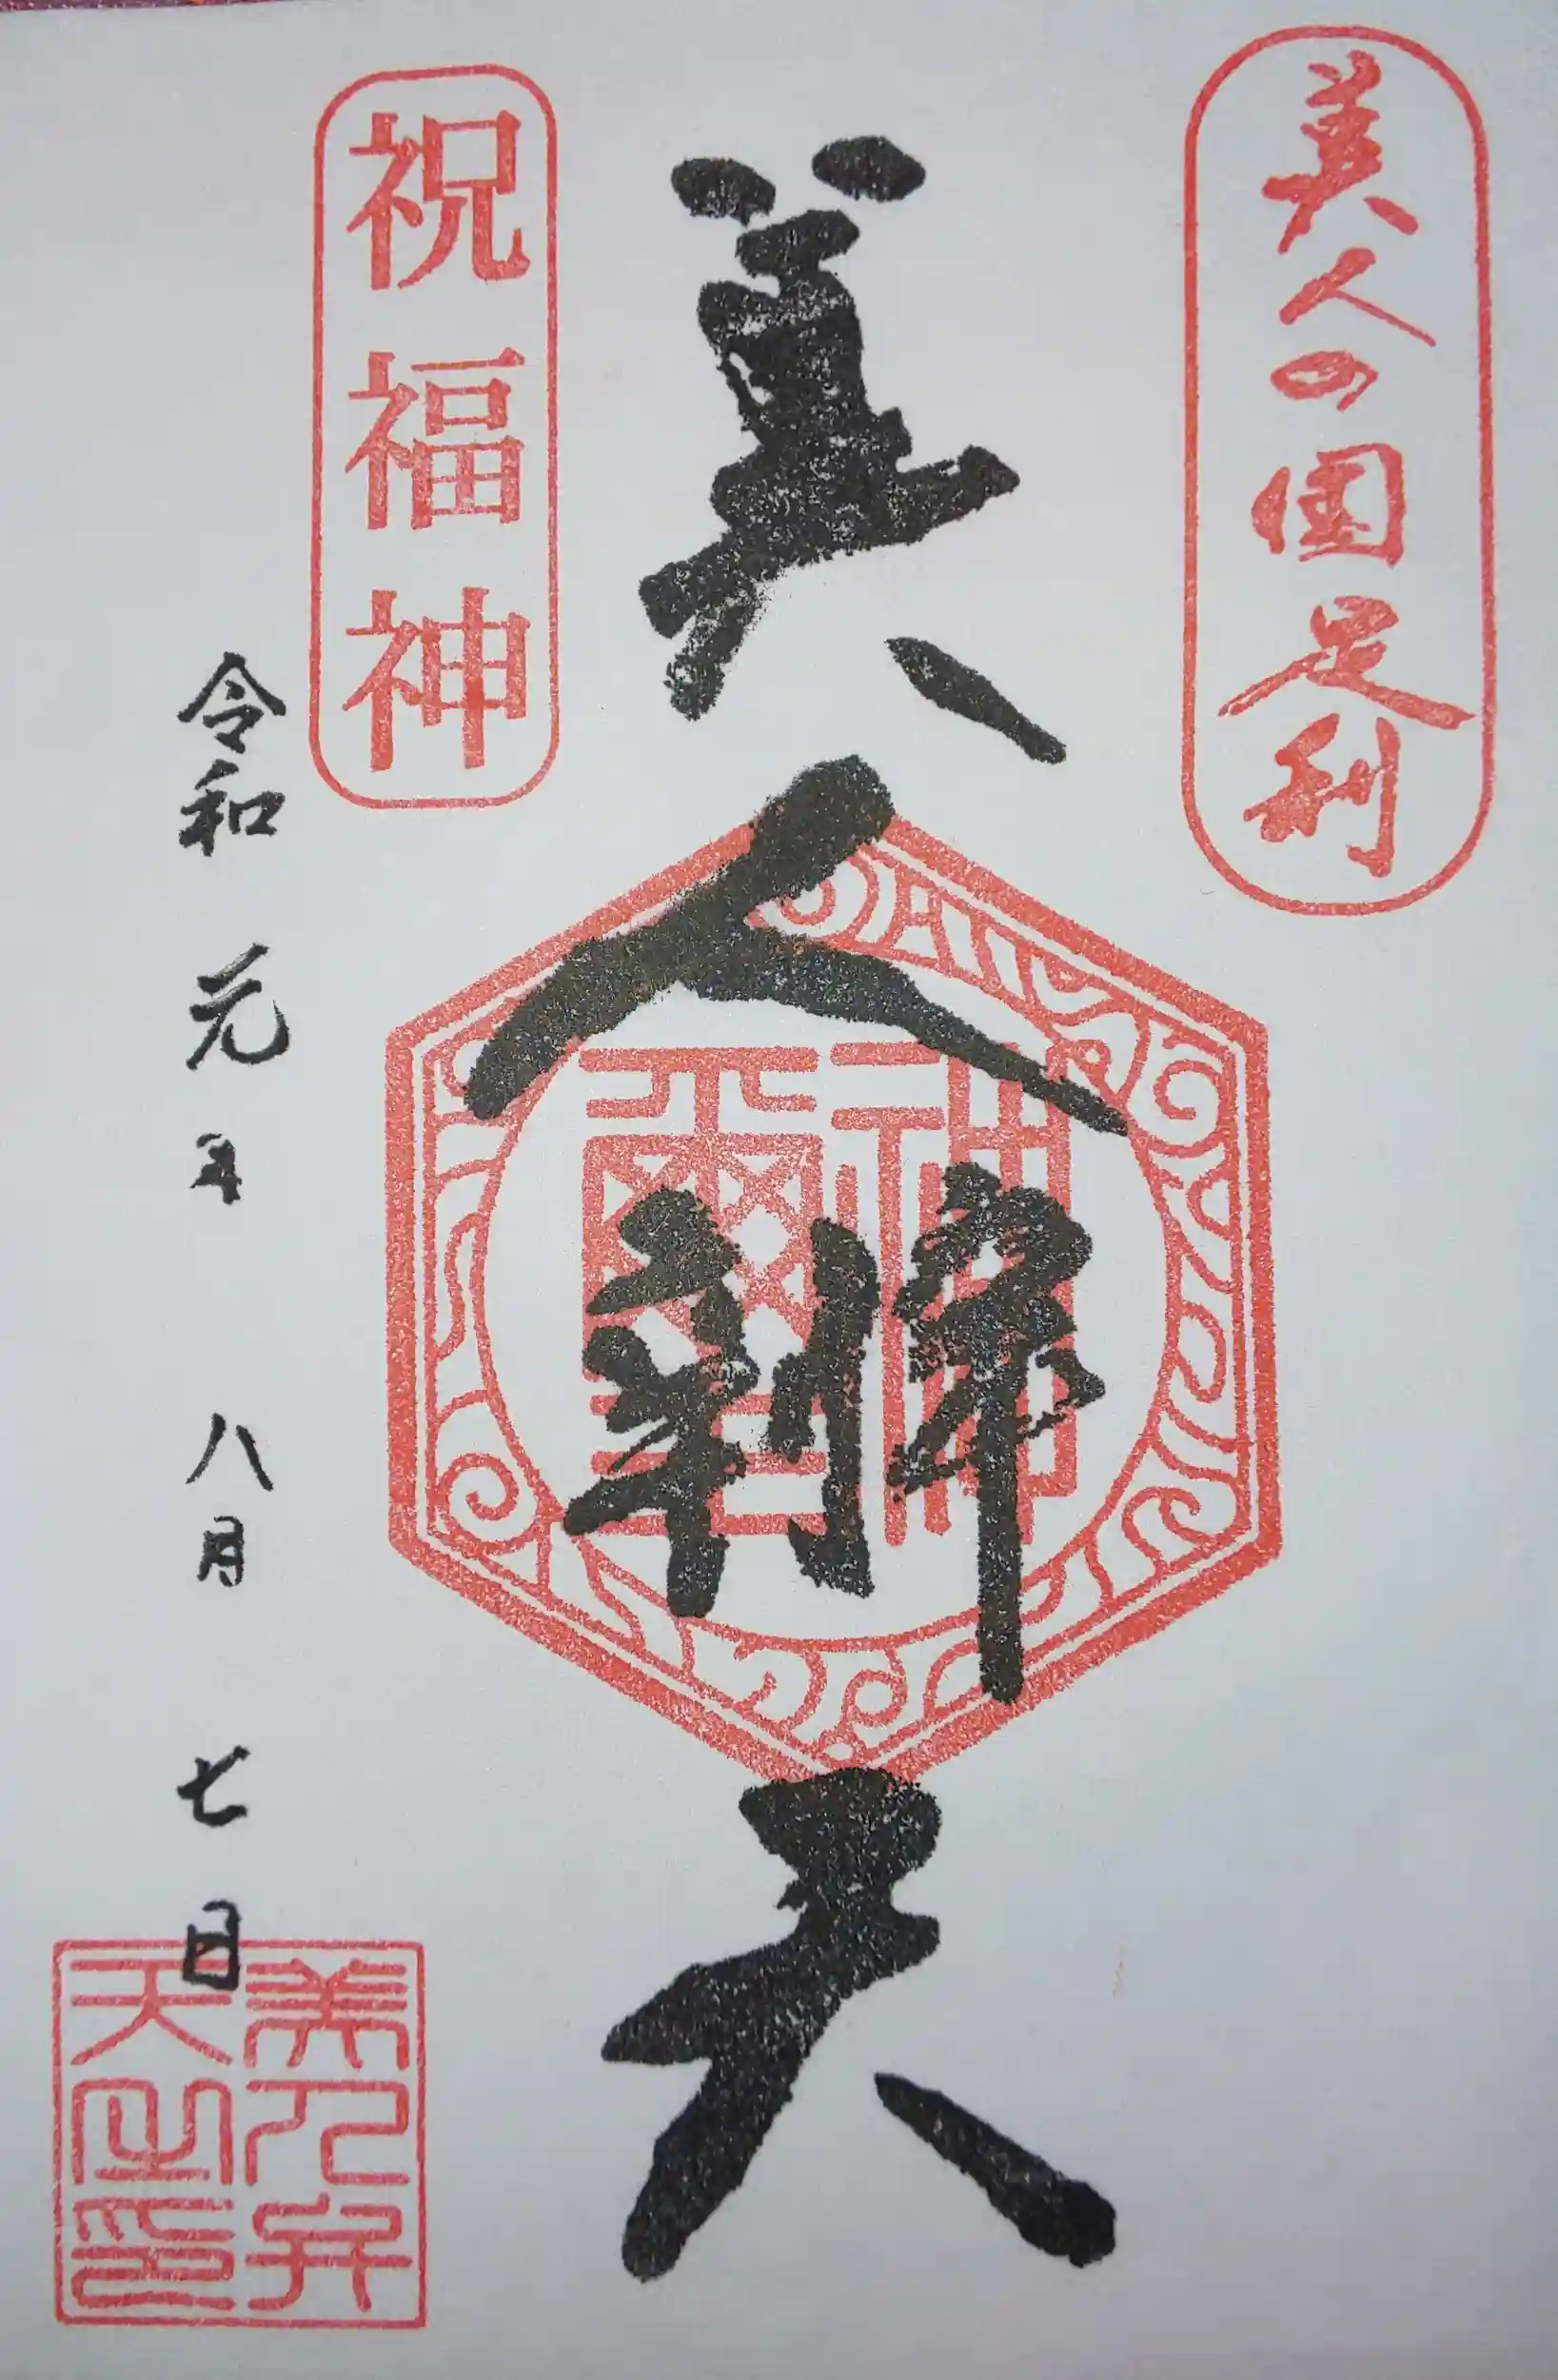 美人の国足利
美人辨天
祝福神
令和元年八月七日
美人弁
天之印